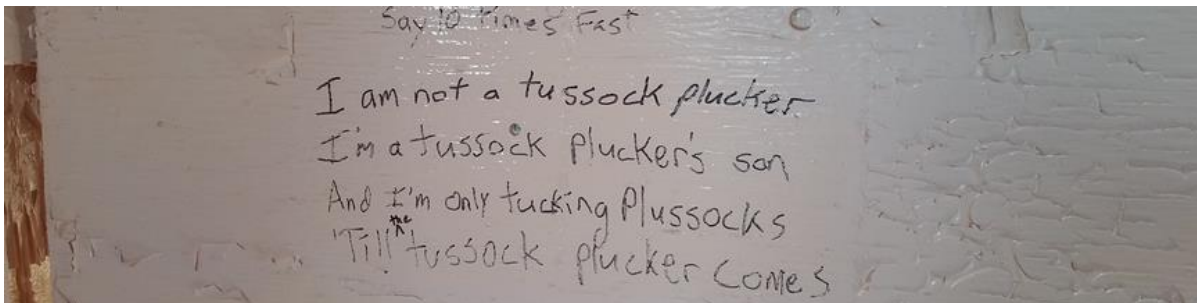 Say 10 Times Fast
I am not a tussock plucker
I'm a tussock plucker's son
And I'm only tucking Plussocks
'Till the tussock plucker comes